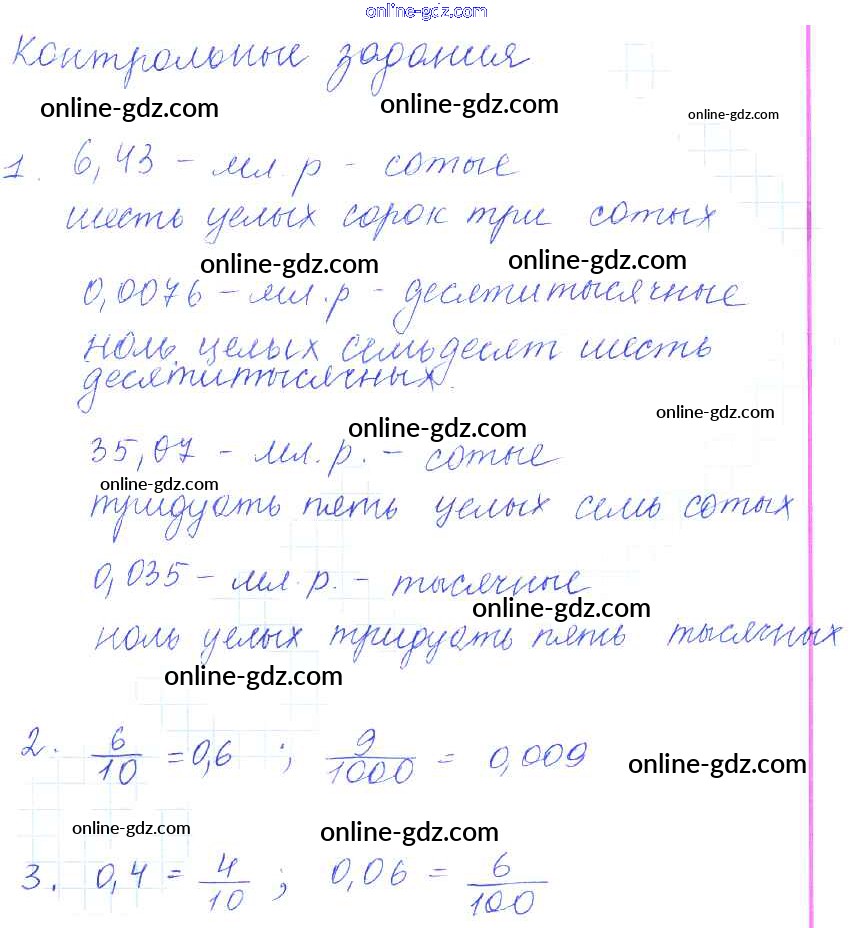 online-gdz.com
Контрольные задания
online-gdz.com online-gdz.com online-gdz.com
1. 6,43 - мл. р - сотые
шесть целых сорок три сотых
online-gdz.com online-gdz.com
0,0076 - мл. р - десятитысячные
ноль целых семьдесят шесть
десятитысячных.
online-gdz.com online-gdz.com
35,07 - мл. р. - сотые
online-gdz.com
тридцать пять целых семь сотых
0,035 - мл. р. - тысячные
online-gdz.com
ноль целых тридцать пять тысячных
online-gdz.com
2. 6/10 = 0,6 ; 9/1000 = 0,009
online-gdz.com
online-gdz.com online-gdz.com
3. 0,4 = 4/10 ; 0,06 = 6/100